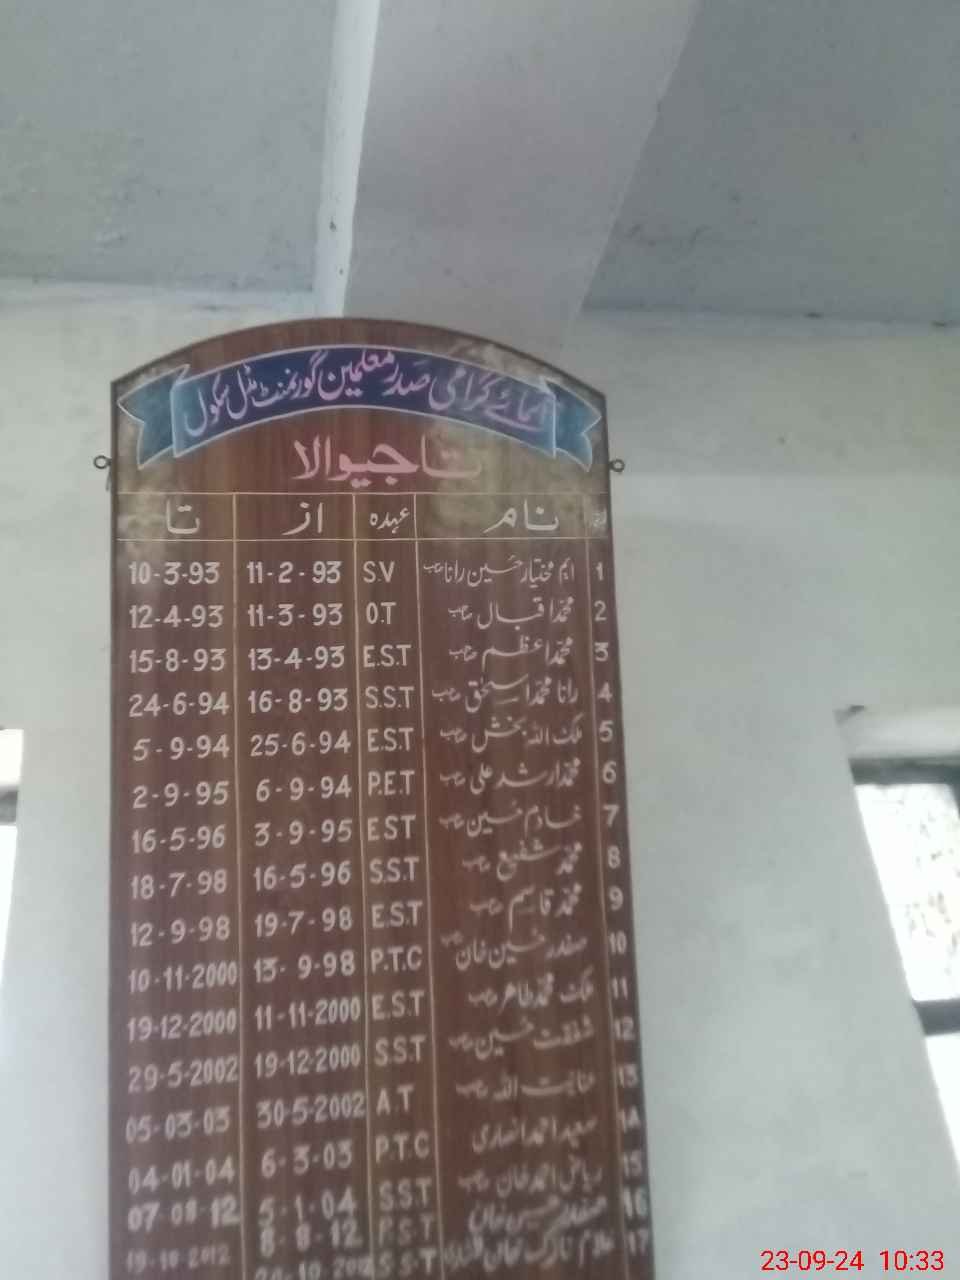 اسمائے گرامی صدر معلمین گورنمنٹ مڈل سکول
تاجیوالا
نام عہدہ از تا
1 ایم مختیار حسین رانا صاحب S.V 11-2-93 10-3-93
2 محمد اقبال صاحب O.T 11-3-93 12-4-93
3 محمد اعظم صاحب E.S.T 13-4-93 15-8-93
4 رانا محمد اسحٰق صاحب S.S.T 16-8-93 24-6-94
5 ملک اللہ بخش صاحب E.S.T 25-6-94 5-9-94
6 محمد ارشد علی صاحب P.E.T 6-9-94 2-9-95
7 خادم حسین صاحب EST 3-9-95 16-5-96
8 محمد شفیع صاحب S.S.T 16-5-96 18-7-98
9 محمد قاسم صاحب E.S.T 19-7-98 12-9-98
10 صفدر حسین خان صاحب P.T.C 13-9-98 10-11-2000
11 ملک محمد طاہر صاحب E.S.T 11-11-2000 19-12-2000
12 شفقت حسین صاحب S.S.T 19-12-2000 29-5-2002
13 عنایت اللہ صاحب A.T 30-5-2002 05-03-03
14 سعید احمد انصاری P.T.C 6-3-03 04-01-04
15 ریاض احمد خان صاحب S.S.T 5-1-04 07-08-12
16 صفدر حسین خان P.S.T 8-8-12 19-10-2012
17 غلام نازک خان S.S.T
23-09-24 10:33